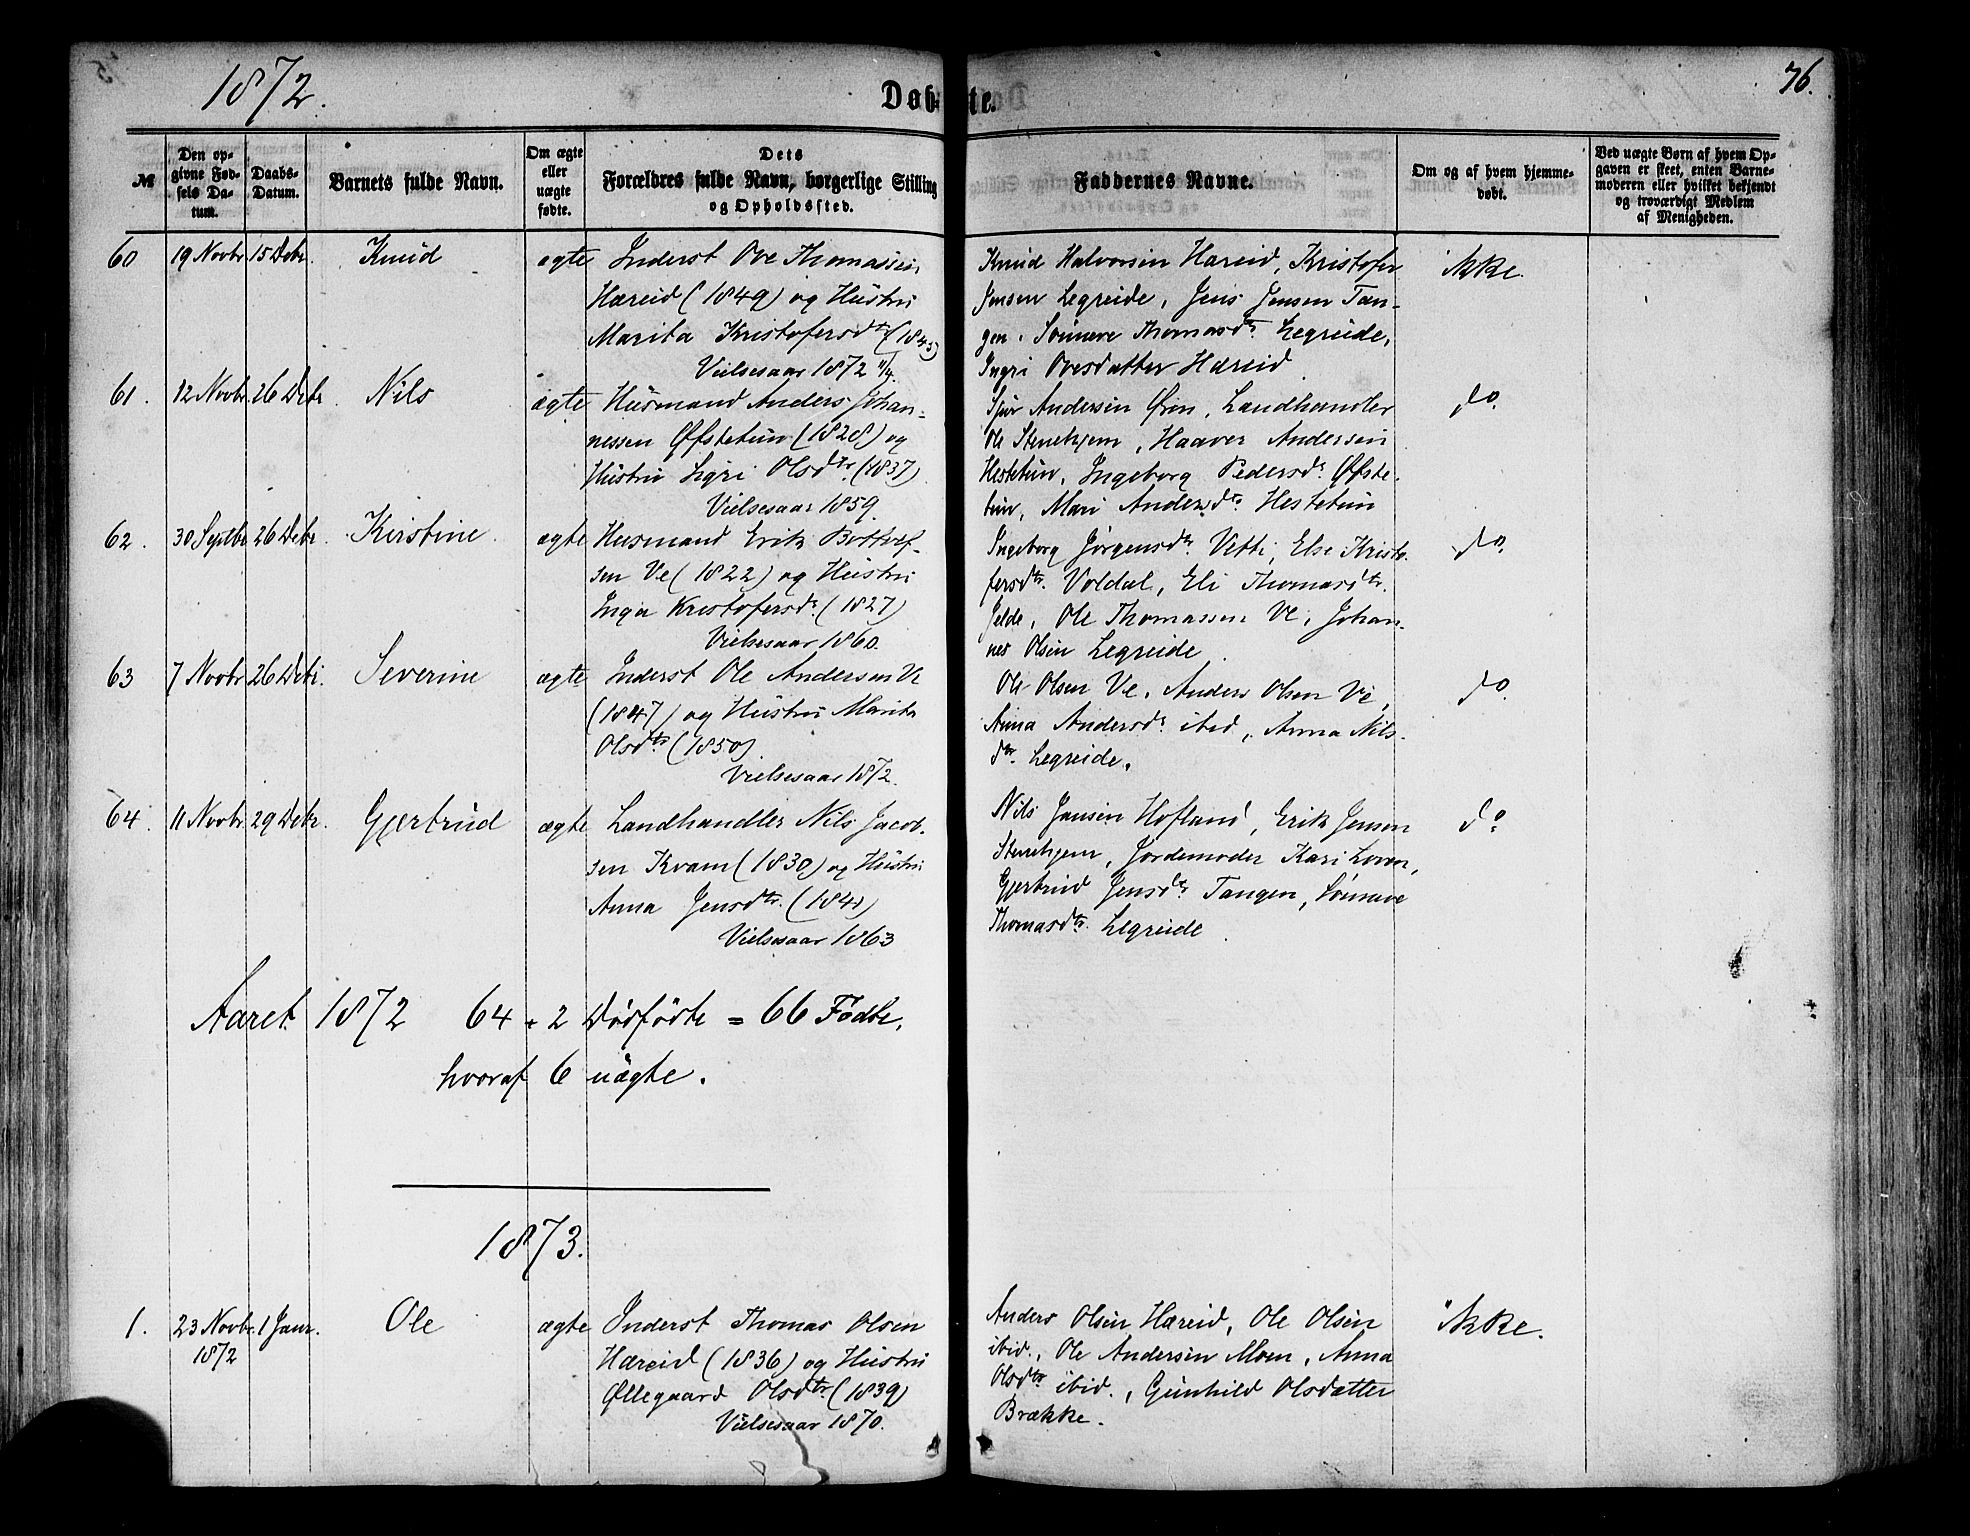 1872.
Døbte.
76.
№
Den opgivne Fødsels Datum.
Daabs-Datum.
Barnets fulde Navn.
Om ægte eller uægte fødte.
Dets Forældres fulde Navn, borgerlige Stilling og Opholdssted.
Faddernes Navne.
Om og af hvem hjemmedøbt.
Ved uægte Børn af hvem Opgaven er skeet, enten Barnemoderen eller hvilket bekjendt og troværdigt Medlem af Menigheden.
60 19 Novbr 15 Debr. Knud ægte Inderst Ove Thomassen
Hæreid (1849) og Hustru
Marita Kristofersdtr (1845)
Vielsesaar 1872 11/4.
Knud Halvorsen Hæreid, Kristofer
Jensen Legreide, Jens Jensen Tan-
gen. Synneve Thomasdtr Legreide,
Ingri Ovesdatter Hæreid
ikke.
61. 12 Novbr 26 Debr. Nils ægte Husmand Anders Johan-
nessen Øfstetun (1828) og
Hustru Sigri Olsdtr. (1837)
Vielsesaar 1859.
Sjur Andersen Øren, Landhandler
Ole Stenehjem, Haaver Andersen
Hestetun, Ingeborg Pedersdr. Øfste-
tun, Mari Andersdtr. Hestetun
do.
62. 30 Septbr 26 Debr. Kirstine. ægte Husmand Erik Bottolf-
sen Ve (1822) og Hustru
Inga Kristofersdr. (1827)
Vielsesaar 1860.
Ingeborg Jørgensdtr. Vetti, Else Kristo-
fersdtr. Voldal, Eli Thomasdtr.
Jelde, Ole Thomassen Ve, Johan-
nes Olsen Legreide.
do.
63 7 Novbr 26 Debr. Severine ægte Inderst Ole Andersen Ve
(1847) og Hustru Marita
Olsdtr. (1850)
Vielsesaar 1872.
Ole Olsen Ve, Anders Olsen Ve,
Anna Andersdr ibid, Anna Nils-
dtr. Legreide.
do.
64. 11 Novbr. 29 Debr. Gjertrud ægte Landhandler Nils Jacob-
sen Kvam (1830) og Hustru
Anna Jensdtr. (1841)
Vielsesaar 1863
Nils Jansen Hofland, Erik Jensen
Stenehjem, Jordemoder Kari Loven,
Gjertrud Jensdtr Tangen, Synneve
Thomasdtr. Legreide
do
Aaret 1872 64 + 2 Dødfødte = 66 Fødte,
hvoraf 6 uægte.
1873.
1. 23 Novbr. 1 Janr. Ole ægte Inderst Thomas Olsen
1872
Hæreid (1836) og Hustru
Øllegaard Olsdtr. (1839)
Vielsesaar 1870.
Anders Olsen Hæreid, Ole Olsen
ibid., Ole Andersen Moen, Anna
Olsdtr ibid., Gunhild Olsdatter
Brække.
ikke.